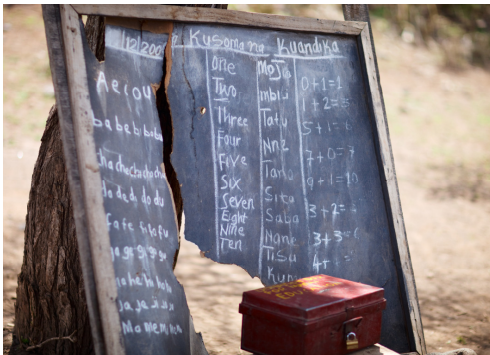 Kusoma na Kuandika
A e i o u
ba be bi bo bu
cha che chi cho chu
da de di do du
fa fe fi fo fu
ga ge gi go gu
ha he hi ho hu
ja je ji jo ju
One
Two
Three
Four
Five
Six
Seven
Eight
Nine
Ten
Moja
mbili
Tatu
Nne
Tano
Sita
Saba
Nane
Tisa
0+1=1
1+2=3
5+1=6
7+0=7
9+1=10
3+2=
3+3=